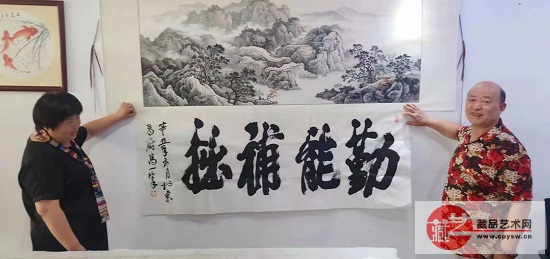 勤能補拙
辛丑年六月於
藏艺
藏品艺术网
www.cpysw.cn